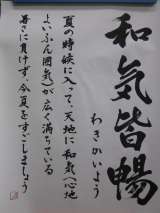 和気皆暢
わきかいよう
夏の時候に入って、天地に和気(心地
よいふん囲気)が広く満ちている
暑さに負けず、今夏をすごしましょう